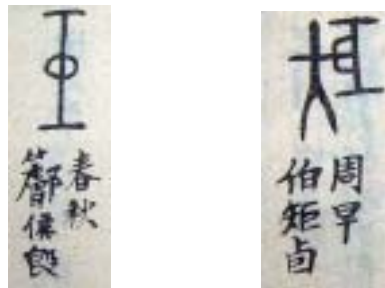 春秋
侯𣪘
周早
伯矩卣